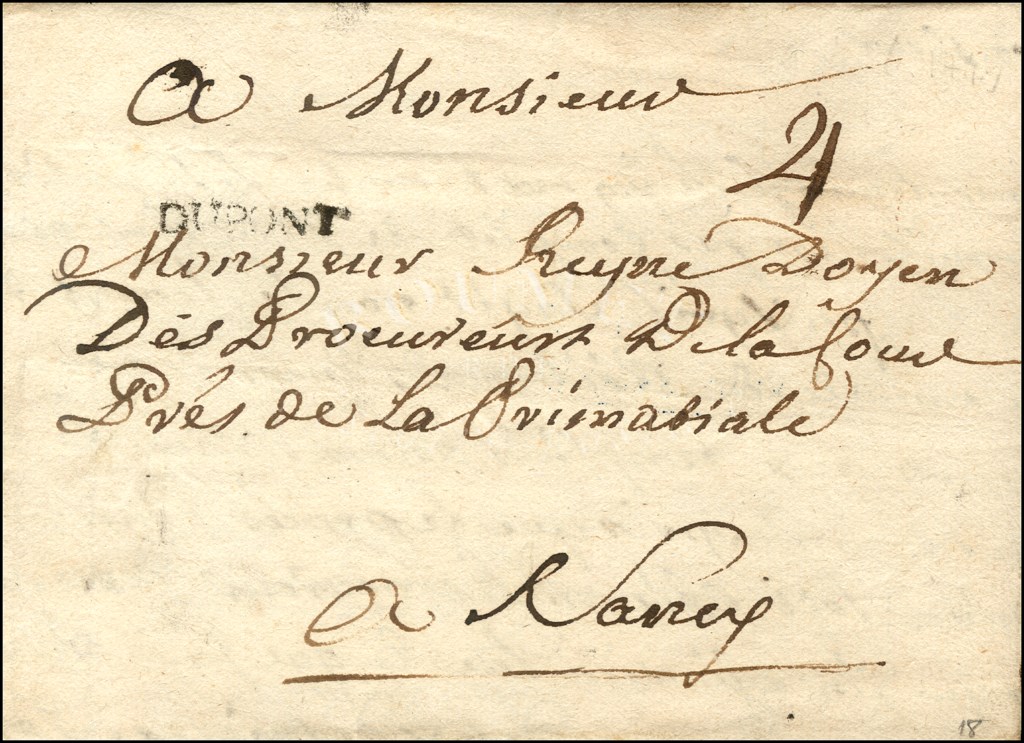 A Monsieur
4
DUPONT
Monsieur Reyne Doyen
Dés Procureurs De la Cour
Prés de La Primatiale
a Nancy
18